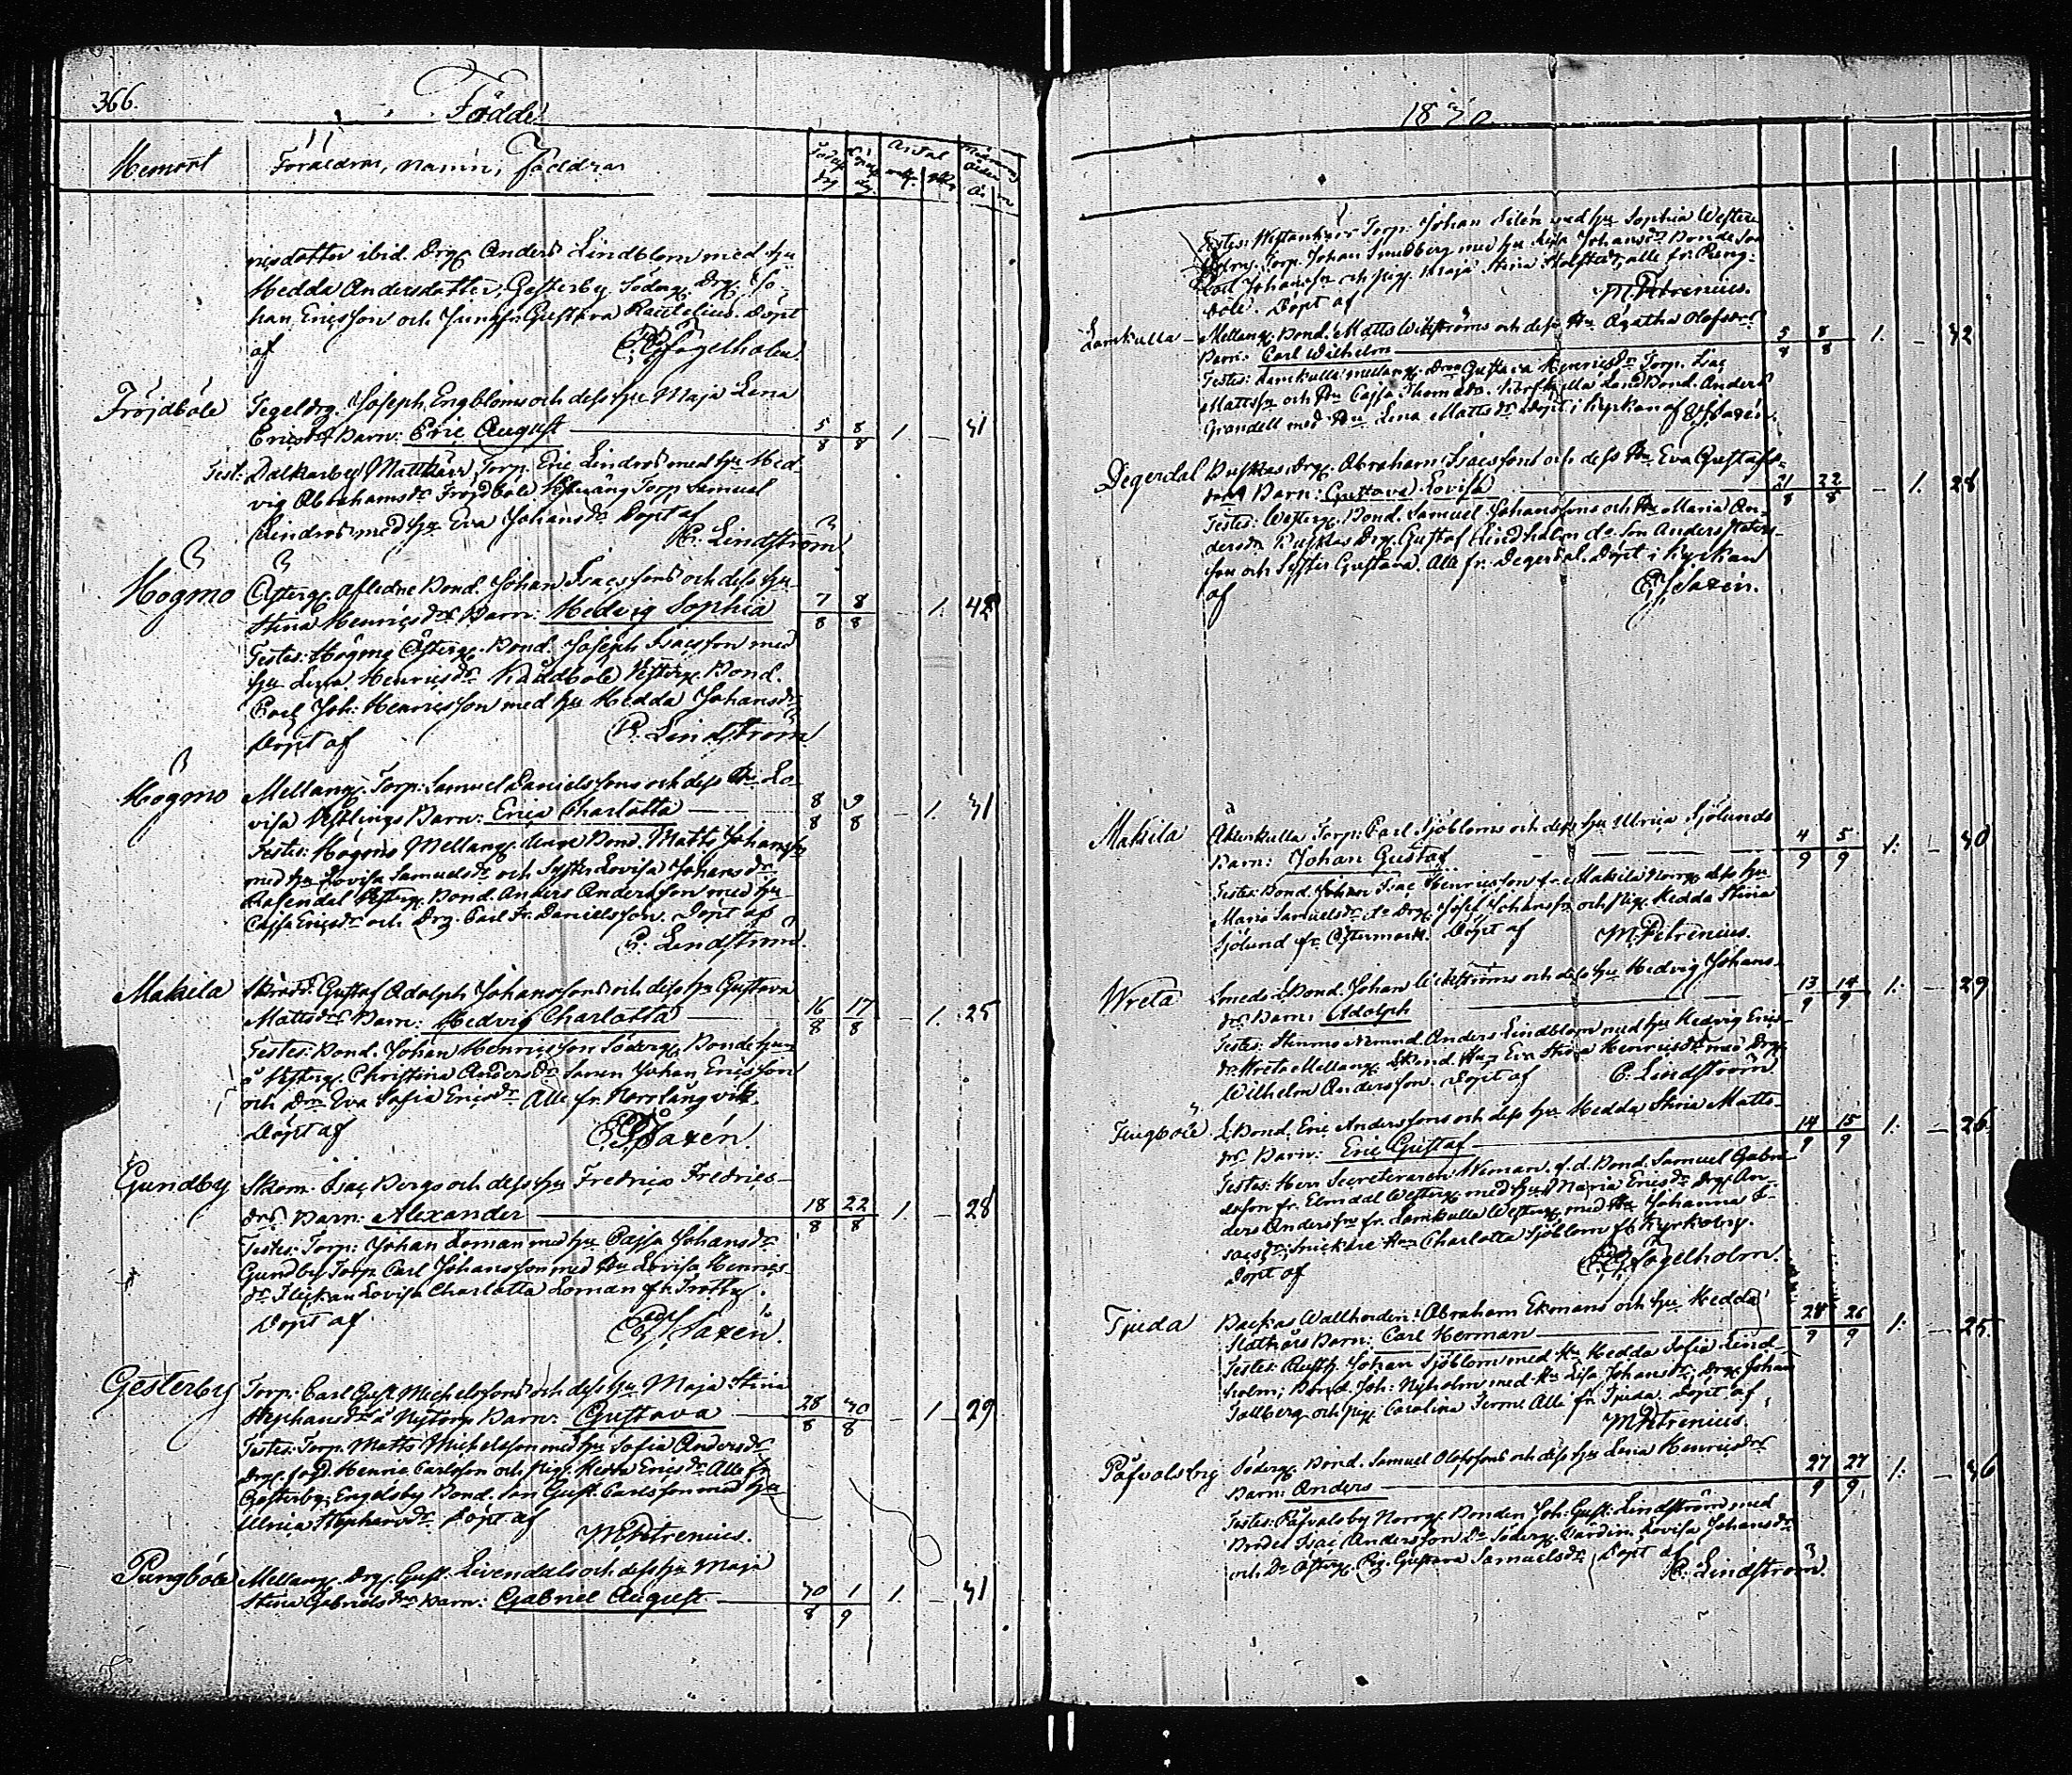 366.
Födde
Hemort
Föräldrar, namn, Faddrar
risdotter ibid. Drg. Anders Lindblom med hu
Hedda Andersdotter, Gesterby Söderg. Drg. Jo-
han Ericsson och Jungfr. Gustava Rautelius. Döpt
af
Fogelholm.
Fröjdböle
Tegeldrg. Joseph Engbloms och dess hu Maja Lena
Ericsdrs Barn: Eric August
5/8 8/8 1. — 31
Test: Dalkarby Mattkärr, Torp. Eric Lindros med hu Hed-
vig Abrahamsdr Fröjdböle Torp Samuel
Lindros med hu Eva Johansdr Döpt af
C. Lindström
Högmo
Österg. Aflidne Bond. Johan Isacssons och dess hu
Stina Henricsdrs Barn: Hedvig Sophia
7/8 8/8 — 1. 42
Testes: Högmo Österg. Bond. Joseph Isacsson med
hu Lena Henricsdr Råddböle Westerg. Bond.
Carl Joh: Henricsson med hu Hedda Johansdr
Döpt af
C. Lindström
Högmo
Mellang. Torp: Samuel Danielssons och dess Hu Lo-
visa Barn: Erica Charlotta
8/8 9/8 — 1. 31
Testes: Högmo Mellang. Unge Bond. Matts Johansson
med hu Lovisa Samuelsdr och Syster Lovisa Johansdr
Rosendal Westerg. Bond. Anders Andersson med hu
Cajsa Ericsdr och Drg. Carl Fr. Danielsson. Döpt af
C. Lindström.
Makila
Gustaf Adolph Johanssons och dess hu Gustava
Mattsdrs Barn: Hedvig Charlotta
16/8 17/8 — 1. 25
Testes: Bond. Johan Henricsson Söderg. Bondehu
å Westerg. Christina Andersdr Johan Ericsson
och Drn Eva Sofia Ericsdr Alle fr. Norrlångvik.
Döpt af
Saxén
Gundby
Skom. Isac Bergs och dess hu Fredrica Fredrics-
drs Barn: Alexander
18/8 22/8 1. — 28
Testes: Torp: Johan Loman med hu Cajsa Johansdr
Gundby Torp. Carl Johansson med Hu Lovisa Henrics-
dr Flickan Lovisa Charlotta Loman fr. Trotby.
Döpt af
Saxén.
Gesterby
Torp: Carl Gust. Michelssons och dess hu Maja Stina
Stephansdrs å Nytorp Barn: Gustava
28/8 30/8 — 1. 29
Testes: Torp. Matts Michelsson med hu Sofia Andersdr
Drg. Henric Carlsson och pig. Hedda Ericsdr Alle fr
Gesterby; Engelsby Bond. son Gust. Carlsson med hu
Ulrica Stephansdr Döpt af
M. Petrenius.
Pungböle
Mellang. Drg. Gust. Livendals och dess hu Maja
Stina Gabrielsdrs Barn: Gabriel August
30/8 1/9 1. — 31
1830
Testes: Torp. Johan med hu Sophia Wester
Torp. Johan Sundberg med hu Lisa Johansdr Bonde son
Carl Johansson och pig. Maja Stina alle fr. Pung-
böle. Döpt af
M. Petrenius.
Lamkulla
Mellang. Bond. Matts Wikströms och dess Hu Agatha Olofsdrs
Barn: Carl Wilhelm
5/8 8/8 1. — 32
Testes: Lamkulla mellang. Drn Gustava Henricsdr Torp. Isac
Mattsson och Hu Cajsa Thomasdr. Landbond. Anders
Grandell med Hu Lena Mattsdr Döpt i kyrkan af Saxén.
Degerdal
Buskas Drg. Abraham Isacssons och dess Hu Eva Gustafs-
drs Barn: Gustava Lovisa
21/8 22/8 — 1. 28
Testes: Westerg. Bond. Samuel Johanssons och Hu Maria An-
dersdr. Buskas Drg. Gustaf Lindholm do. Son Anders
son och Syster Gustava. Alla fr. Degerdal. Döpt i kyrkan
af
Saxén.
Makila
Åkerkulla Torp: Carl Sjöbloms och dess hu Ulrica Sjölunds
Barn: Johan Gustaf
4/9 5/9 1. — 30
Testes: Bond. Johan Isac Henricsson fr. Makila Norrg. dess hu
Maria Samuelsdr do Drg. Josef Johansson och Pig. Hedda Stina
Sjölund fr. Östermark. Döpt af
M. Petrenius.
Wreta
Smeds Bond. Johan Wikströms och dess hu Hedvig Johans-
drs Barn: Adolph
13/9 14/9 1. — 29
Testes: Anders Lindblom med hu Hedvig Erics-
dr. Wreta Mellang. Hu Eva Stina Henricsdr med Drg.
Wilhelm Andersson. Döpt af C. Lindström
L.Bond. Eric Anderssons och dess hu Hedda Stina Matts-
drs Barn: Eric Gustaf
14/9 15/9 1. — 26
Testes: Herr Secreteraren Neman. f.d. Bond. Samuel Gabri-
elsson fr. Elmdal Westerg. med hu Maria Ericsdr Drg. An-
ders Andersson fr. Lamkulla Westerg. med Hu Johanna I-
sacsdr; Snickare Hu Charlotta Sjöblom fr. Kyrkoby.
Döpt af
Fogelholm.
Tjuda
Backas Abraham Ekmans och hu Hedda
Barn: Carl Herman
24/9 26/9 1. — 25
Testes: Johan Sjöblom med Hu Hedda Sofia Lind-
holm; Bond. Joh: Nyholm med Hu Lisa Johansdr; Drg. Johan
Tallberg och pig. Carolina Alle fr. Tjuda. Döpt af
M. Petrenius.
Påfvalsby
Söderg. Bond. Samuel Olofssons och dess hu Lena Henricsdrs
Barn: Anders
27/9 27/9 1. — 36
Testes: Påfvalsby Norrg. Bonden Joh: Gust: Lindström med
Broder Isac Andersson Do Söderg. Värdin. Lovisa Johansdr
och Do Österg. Pig. Gustava Samuelsdr Döpt af
C. Lindström.